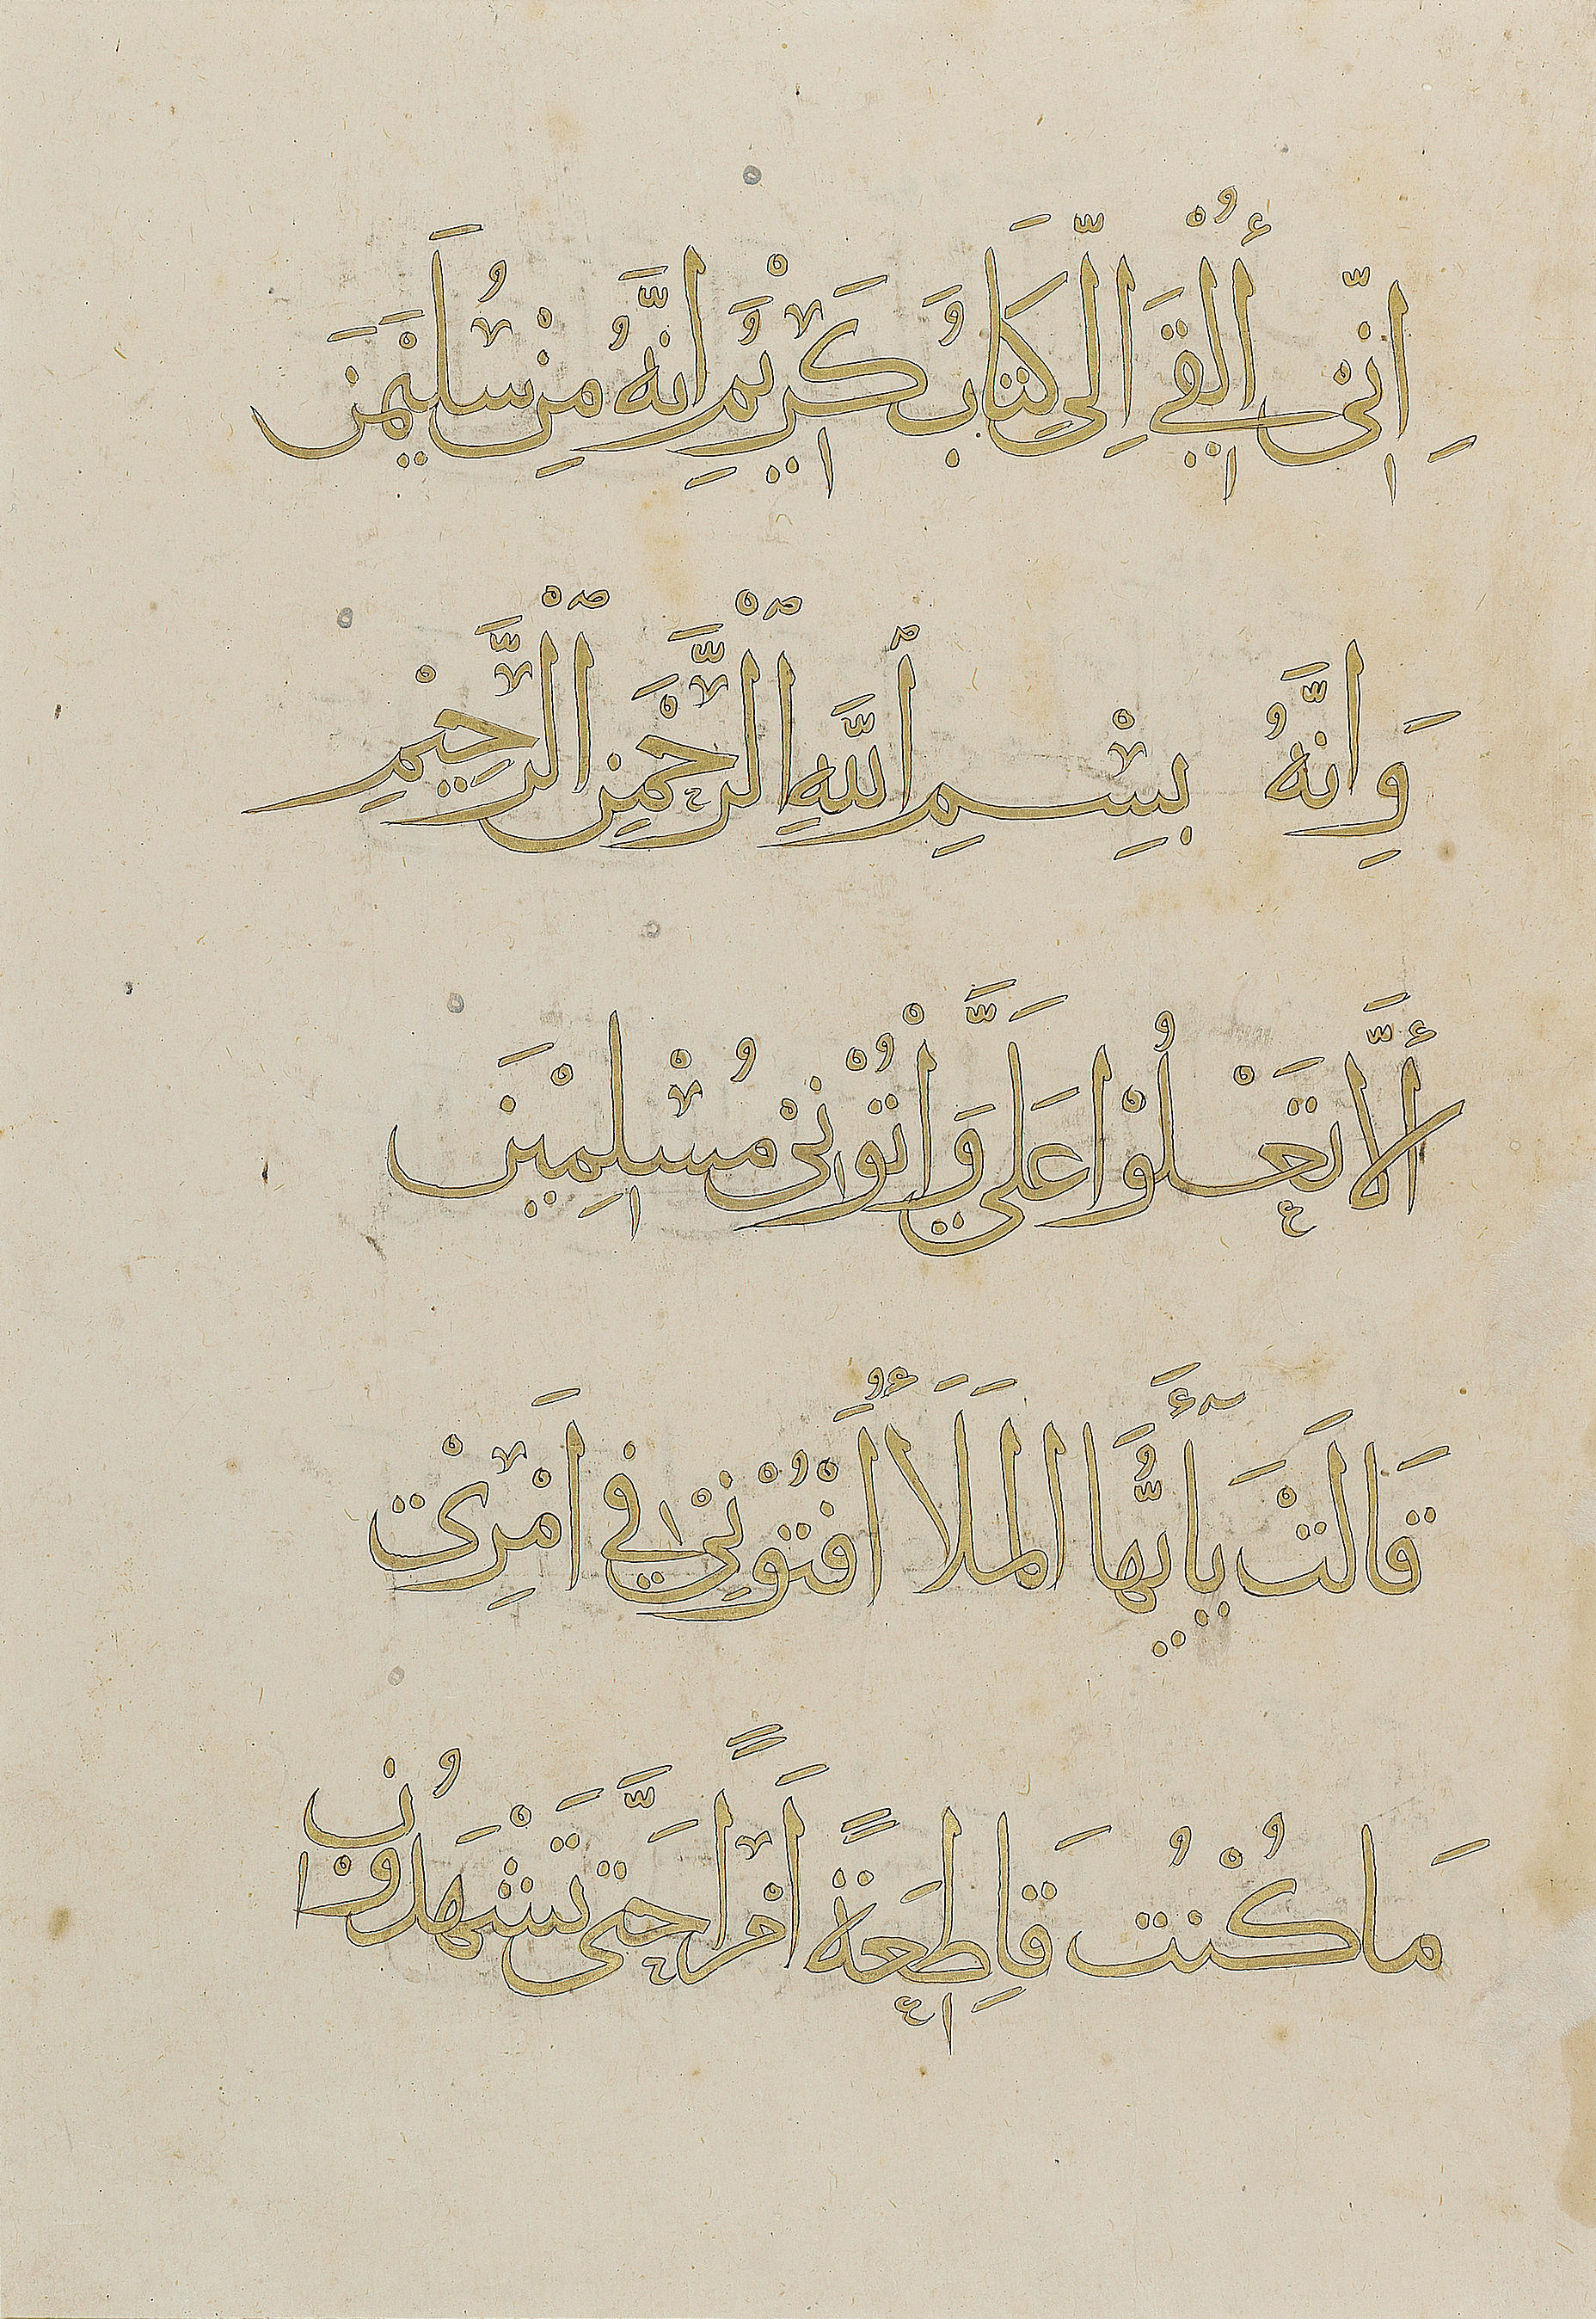 اِنِّى أُلْقِيَ اِلَىَّ كِتَابٌ كَرِيْمٌ اِنَّهُ مِنْ سُلَيْمٰنَ
وَاِنَّهُ بِسْمِ ٱللَّهِ ٱلْرَّحْمَنِ ٱلْرَّحِيْمِ
أَلَّا تَعْلُوْا عَلَيَّ وَاْتُوْنِىْ مُسْلِمِيْنَ
قَالَتْ يَآأَيُّهَا الْمَلَأُ اَفْتُوْنِيْ فِي اَمْرِىْ
مَا كُنْتُ قَاطِعَةً اَمْراً حَتَّى تَشْهَدُوْنِ